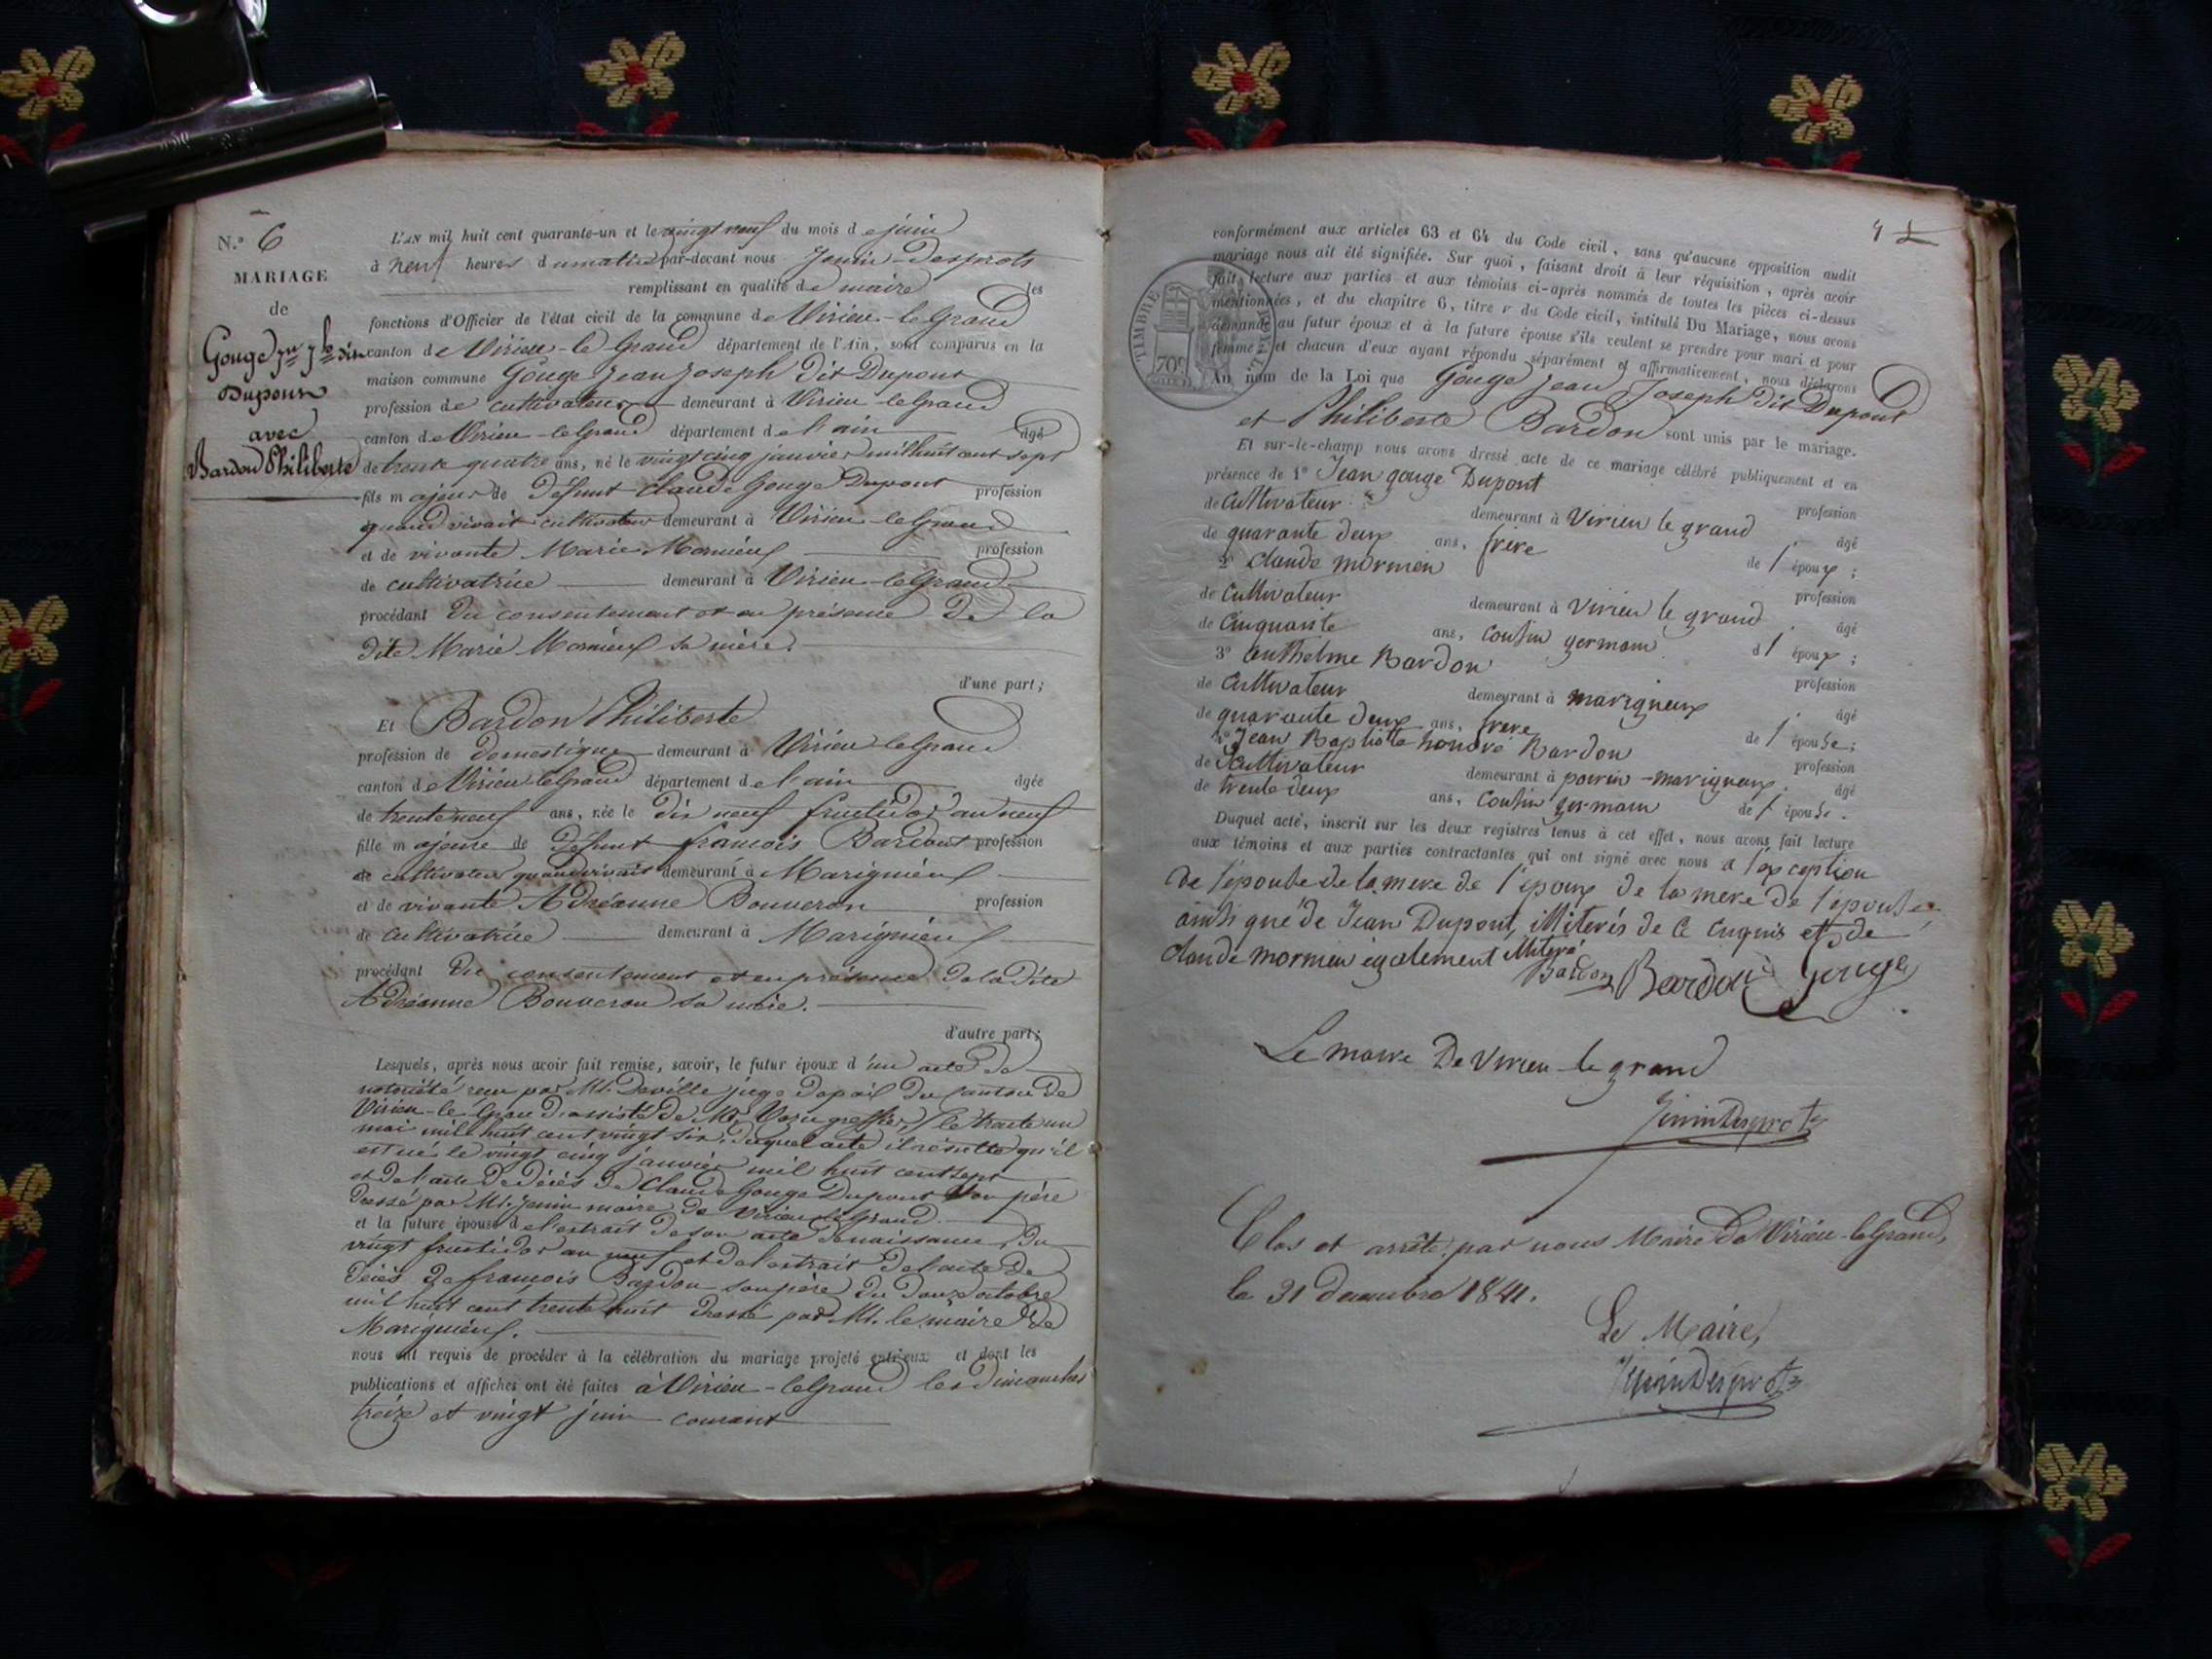 N.° 6
MARIAGE
de
Gouge Jn Jh dit
Dupont
avec
Bardon Philiberte
L'AN mil huit cent quarante-un et le vingt neuf du mois de juin
à neuf heures du matin par-devant nous Jenin-Desprots
remplissant en qualité de maire les
fonctions d'Officier de l'état civil de la commune de Virieu-le Grand
canton de Virieu-le Grand département de l'Ain, sont comparus en la
maison commune Gouge Jean Joseph dit Dupont
profession de cultivateur demeurant à Virieu-le Grand
canton de Virieu-le Grand département de l'ain âgé
de trente quatre ans, né le vingt cinq janvier mil huit cent sept
fils majeur de défunt Claude Gouge Dupont profession
quand vivait cultivateur demeurant à Virieu-le Grand
et de vivante Marie Mornieux profession
de cultivatrice demeurant à Virieu-le Grand
procédant du consentement et en présence de la
dite Marie Mornieux sa mère.
d'une part;
Et Bardon Philiberte
profession de domestique demeurant à Virieu le Grand
canton de Virieu le Grand département de l'ain âgée
de trente neuf ans, née le dix neuf fructidor an neuf
fille majeure de défunt françois Bardon profession
de cultivateur quand vivait demeurant à Marignieux
et de vivante Adréanne Bouveron profession
de cultivatrice demeurant à Marignieux
procédant du consentement et en présence de la dite
Adréanne Bouveron sa mère.
d'autre part;
Lesquels, après nous avoir fait remise, savoir, le futur époux d'un acte de
notoriété reçu par Mr. Deville juge de paix du canton de
Virieu-le Grand assisté de Mr greffier, le trente un
mai mil huit cent vingt six, duquel acte il résulte qu'il
est né le vingt cinq janvier mil huit cent sept
et de l'acte de décès de Claude Gouge Dupont son père
dressé par Mr. Jenin maire de Virieu le Grand.
et la future épouse de l'extrait de son acte de naissance, du
vingt fructidor an neuf et de l'extrait de l'acte de
décès de françois Bardon son père du douze octobre
mil huit cent trente huit dressé par Mr. le maire de
Marignieux.
nous ont requis de procéder à la célébration du mariage projeté entr'eux et dont les
publications et affiches ont été faites à Virieu-le Grand les dimanches
treize et vingt juin courant
conformément aux articles 63 et 64 du Code civil, sans qu'aucune opposition audit
mariage nous ait été signifiée. Sur quoi, faisant droit à leur réquisition, après avoir
fait lecture aux parties et aux témoins ci-après nommés de toutes les pièces ci-dessus
mentionnées, et du chapitre 6, titre v du Code civil, intitulé Du Mariage, nous avons
demandé au futur époux et à la future épouse s'ils veulent se prendre pour mari et pour
femme; et chacun d'eux ayant répondu séparément et affirmativement, nous déclarons
TIMBRE ROYAL
70c
Au nom de la Loi que Gouge Jean Joseph dit Dupont
et Philiberte Bardon sont unis par le mariage.
Et sur-le-champ nous avons dressé acte de ce mariage célébré publiquement et en
présence de 1° Jean gouge Dupont profession
de Cultivateur demeurant à Virieu le grand âgé
de quarante deux ans, frère de l'époux;
2° claude mornieu profession
de Cultivateur demeurant à Virieu le grand âgé
de Cinquante ans, Cousin germain d l'époux;
3° anthelme Bardon profession
de Cultivateur demeurant à marignieux âgé
de quarante deux ans, frere de l'épouse;
4° Jean Baptiste honoré Bardon profession
de Cultivateur demeurant à poirin-marignieux âgé
de trente deux ans, Cousin germain de l'épouse.
Duquel acte, inscrit sur les deux registres tenus à cet effet, nous avons fait lecture
aux témoins et aux parties contractantes qui ont signé avec nous a l'exception
de l'épouse de la mere de l'époux de la mere de l'épouse
ainsi que de Jean Dupont, illiterés de Ce Enquis et de
claude mornieu également illiteré
Bardon Bardon Gouge
Le maire De Virieu-le grand
JeninDesprots
Clos et arrêté par nous Maire De Virieu-le Grand,
le 31 décembre 1841.
Le Maire,
JeninDesprots